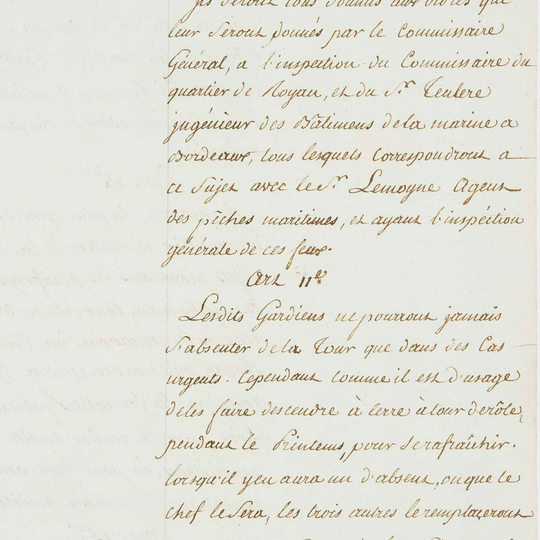 ils seront tous soumis aux ordres que
leur seront donnés par le Commissaire
Général, a l'inspection du Commissaire du
quartier de Royan, et du Sr. Teulere
jngénieur des Bâtimens de la marine a
Bordeaux, tous lesquels Correspondront a
ce Sujet avec le Sr. Lemoyne Agent
des pêches maritimes, et ayant l'inspéction
générale de ces feux.
Art 11e
Lesdits Gardiens ne pourront jamais
S'absenter de la Tour que dans des Cas
urgents. Cependant Comme il est d'usage
de les faire descendre à terre à tour de rôle,
pendant le Printems, pour se rafraîchir.
lorsqu'il y en aura un d'absent, ou que le
chef le Sera, les trois autres le remplaceront